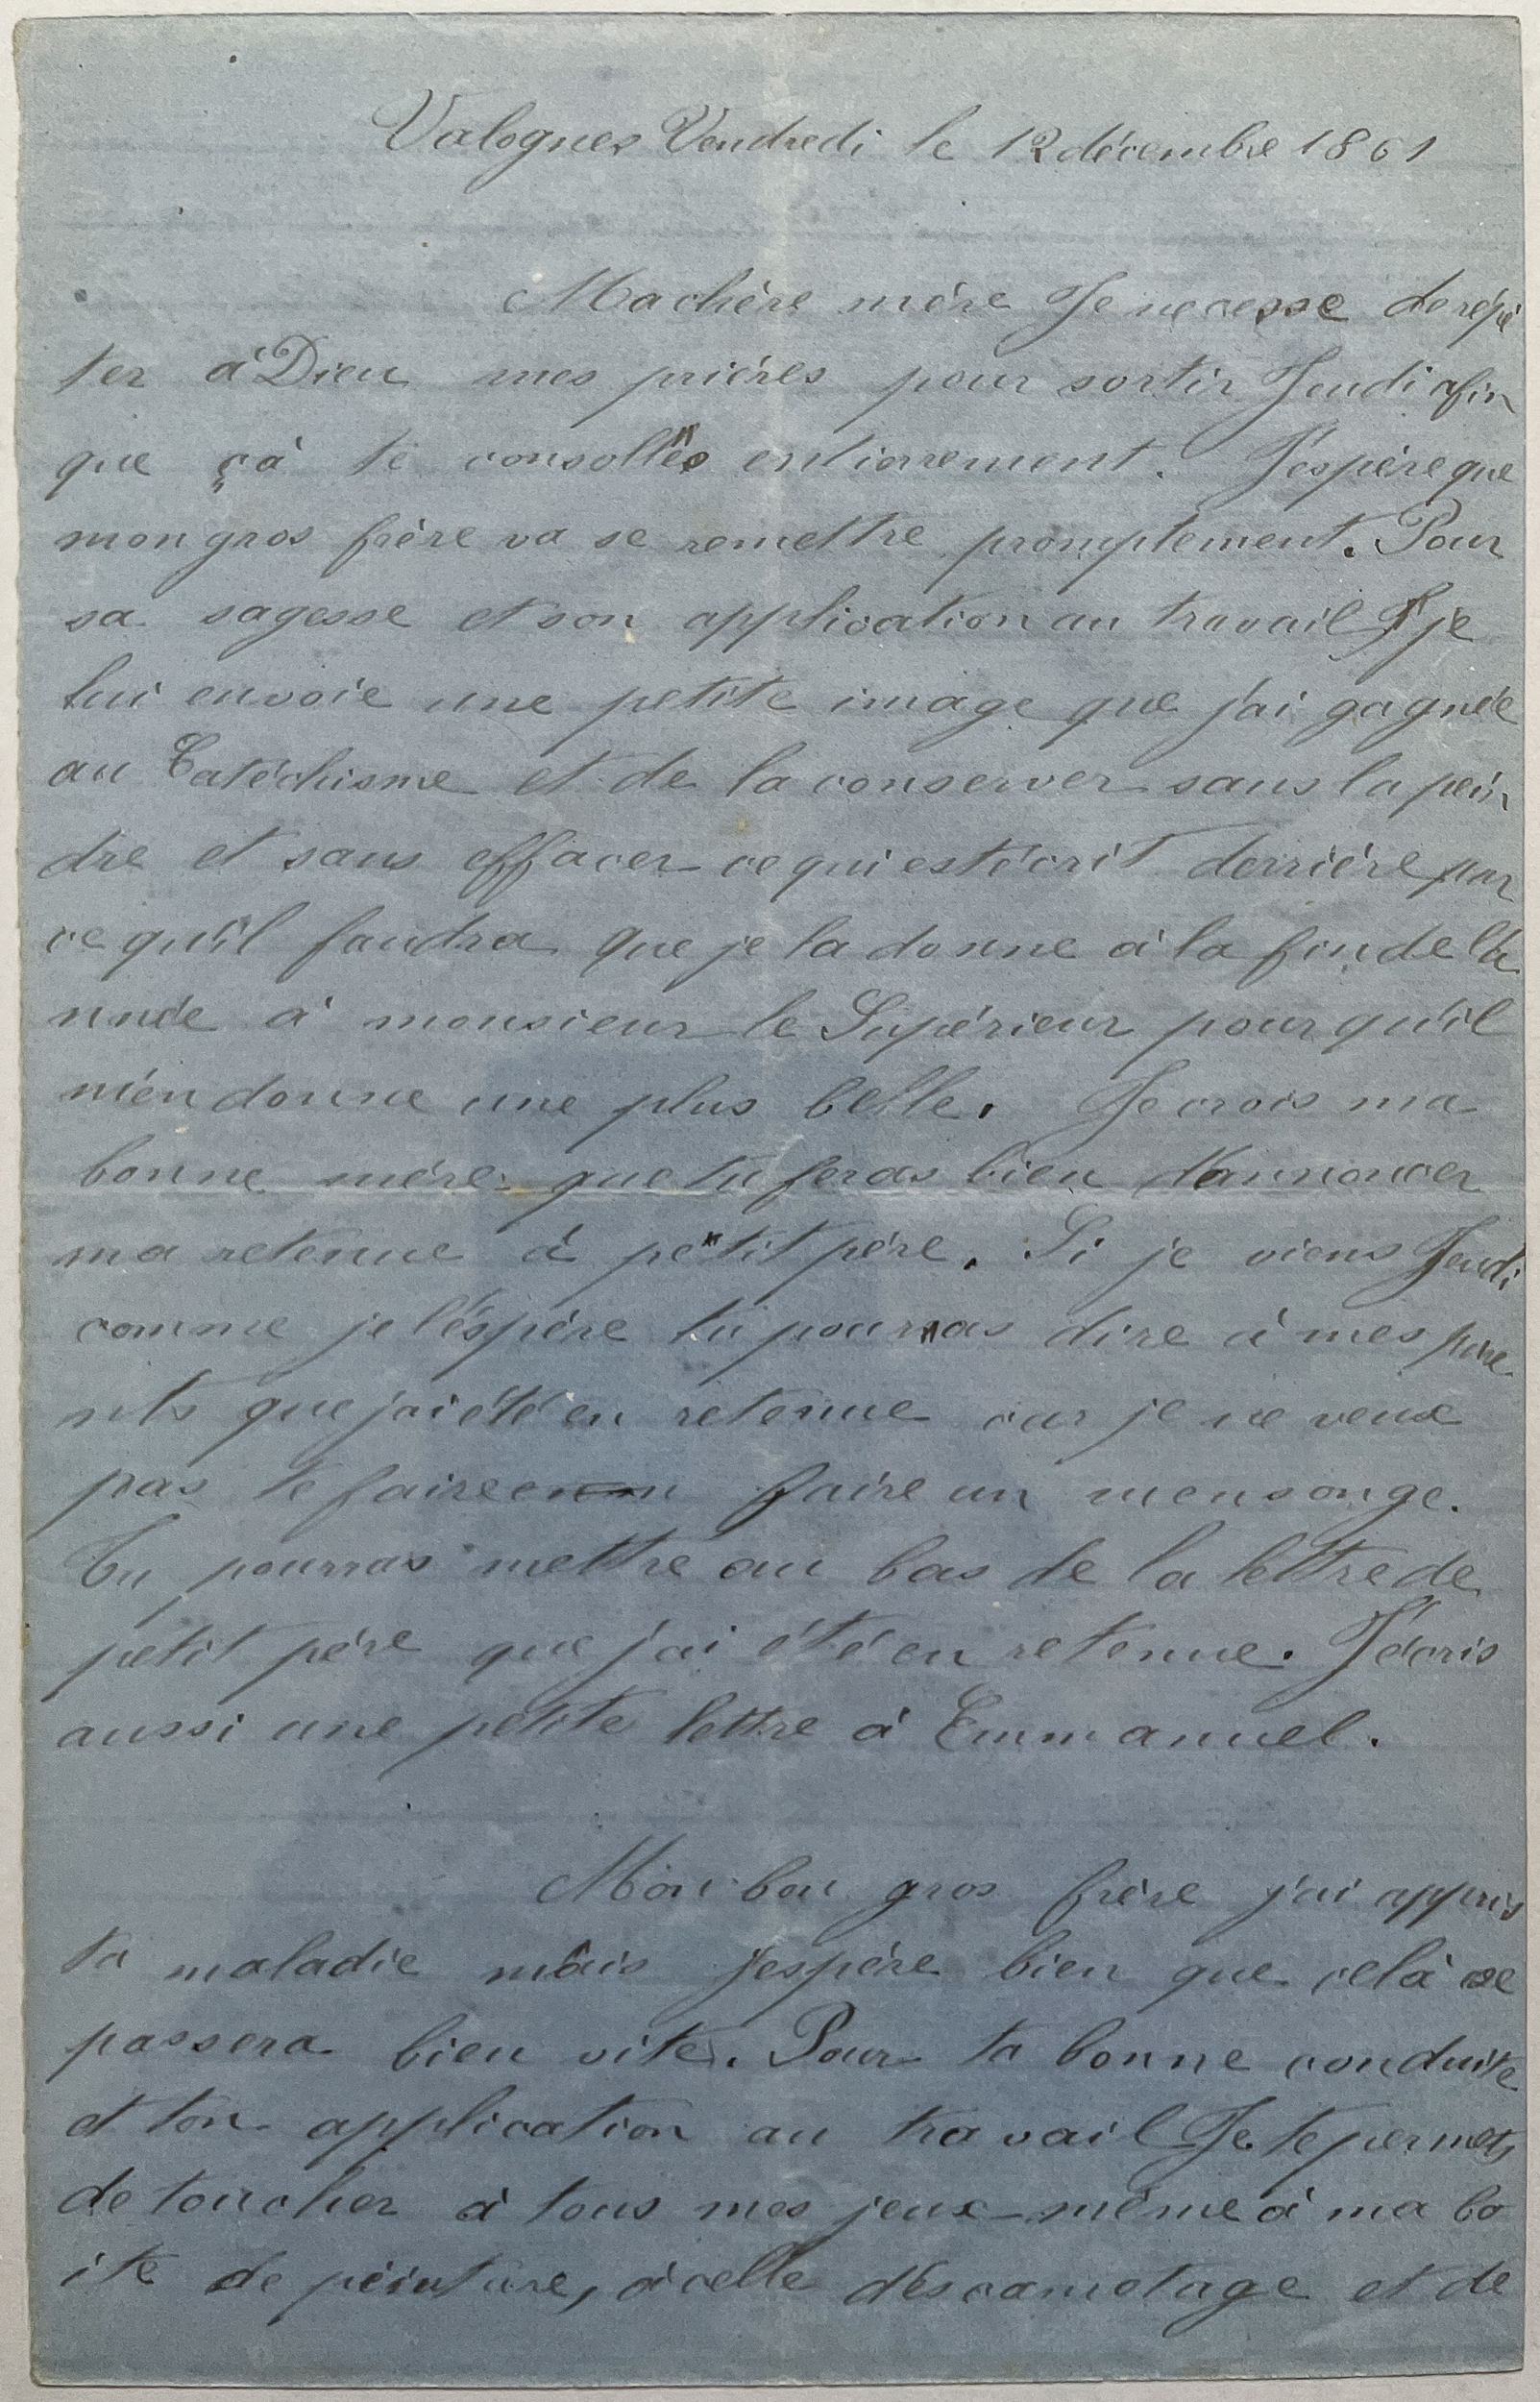 Valognes Vendredi le 12 décembre 1861
Ma chère mère Je ne cesse de répé
ter à Dieu mes prières pour sortir Jeudi afin
que çà te consolles entierement. J'espère que
mon gros frère va se remettre promptement. Pour
sa sagesse et son application au travail je
lui envoie une petite image que j'ai gagnée
au Catéchisme et de la conserver sans la pein
dre et sans effacer ce qui est écrit derrière par
ce qu'il faudra que je la donne à la fin de l'a
nnée à monsieur le Supérieur pour qu'il
m'en donne une plus belle. Je crois ma
bonne mère que tu feras bien d'annoncer
ma retenue à petit père. Si je viens Jeudi
comme je l'éspère tu pourras dire à mes pare
nts que j'ai été en retenue car je ne veux
pas te faire faire un mensonge.
Tu pourras mettre au bas de la lettre de
petit père que j'ai été en retenue. J'écris
aussi une petite lettre à Emmanuel.
Mon bon gros frère j'ai appris
ta maladie mais j'espère bien que celà se
passera bien vite. Pour ta bonne conduite
et ton application au travail Je te permets
de toucher à tous mes jeux même à ma bo
ite de peinture, à celle d'éscamotage et de